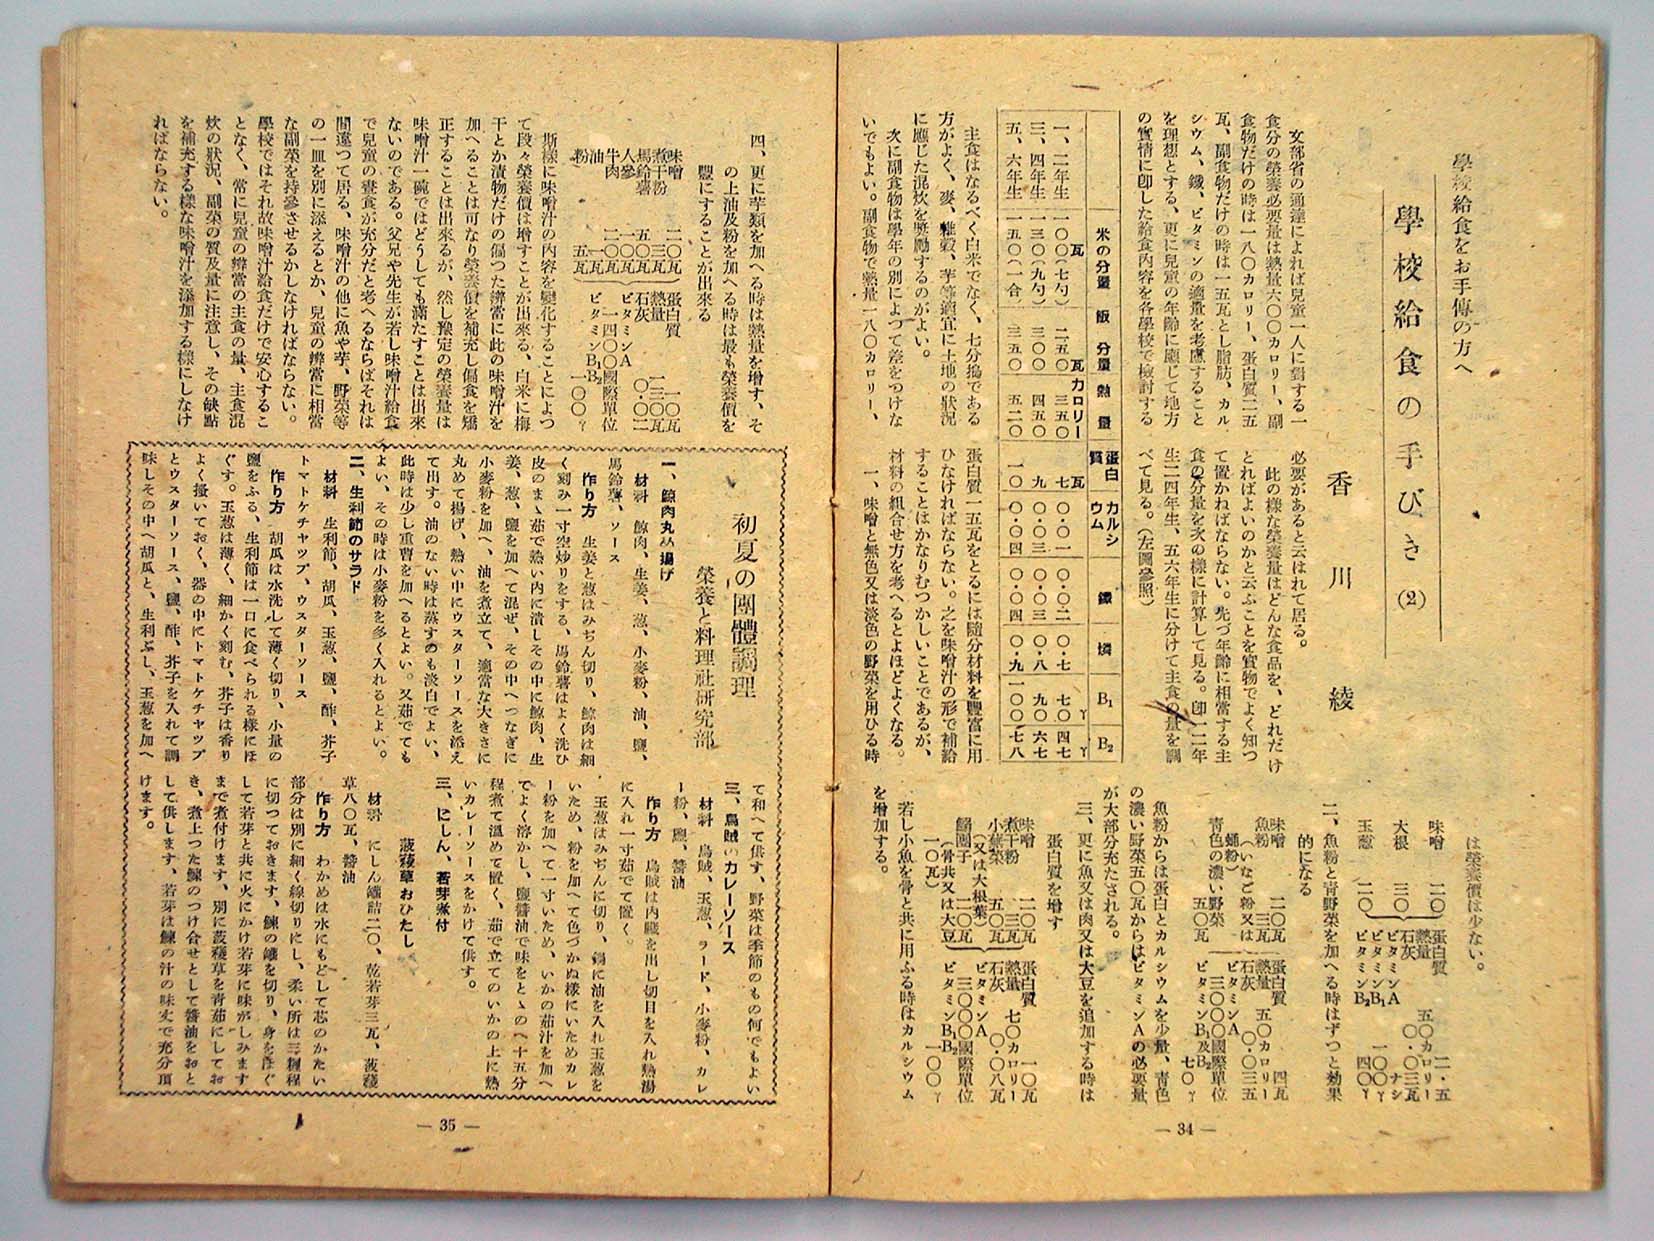 學校給食をお手傳の方へ
學校給食の手びき (2)
香川 綾
文部省の通達によれば兒童一人に對する一
食分の榮養必要量は熱量六〇〇カロリー、副
食物だけの時は一八〇カロリー、蛋白質二五
瓦、副食物だけの時は一五瓦とし脂肪、カル
シウム、鐵、ビタミンの適量を考慮すること
を理想とする、更に兒童の年齡に應じて地方
の實情に卽した給食内容を各學校で檢討する
必要があると云はれて居る。
此の樣な榮養量はどんな食品を、どれだけ
とればよいのかと云ふことを實物でよく知つ
て置かねばならない。先づ年齡に相當する主
食の分量を次の樣に計算して見る。卽一二年
生三四年生、五六年生に分けて主食の量を調
べて見る。(左圖參照)
米の分量 飯 分量 熱量 蛋白質 カルシウム 鐵 燐 B₁ B₂
一、二年生 一〇〇瓦(七勺) 二五〇瓦 三五〇カロリー 七瓦 〇・〇一 〇・〇二 〇・七 七〇γ 四七γ
三、四年生 一三〇(九勺) 三〇〇 四五〇 九 〇・〇三 〇・〇三 〇・八 九〇 六七
五、六年生 一五〇(一合) 三五〇 五二〇 一〇 〇・〇四 〇・〇四 〇・九 一〇〇 七八
主食はなるべく白米でなく、七分搗である
方がよく、麥、雜穀、芋等適宜に土地の狀況
に應じた混炊を奬勵するのがよい。
次に副食物は學年の別によつて差をつけな
いでもよい。副食物で熱量一八〇カロリー、
蛋白質一五瓦をとるには隨分材料を豐富に用
ひなければならない。之を味噌汁の形で補給
することはかなりむつかしいことであるが、
材料の組合せ方を考へるとよほどよくなる。
一、味噌と無色又は淡色の野菜を用ひる時
は榮養價は少ない。
味噌 二〇 蛋白質 二・五
大根 三〇 熱量 五〇カロリー
玉葱 二〇 石灰 〇・〇三瓦
ビタミンA ナシ
ビタミンB₁ 一〇〇γ
ビタミンB₂ 四〇γ
二、魚粉と靑野菜を加へる時はずつと効果
的になる
味噌 二〇瓦 蛋白質 四瓦
魚粉 三瓦 熱量 五〇カロリー
(いなご粉又は蛹粉) 石灰 〇・〇三五
靑色の濃い野菜 五〇瓦 ビタミンA 三〇〇〇國際單位
ビタミンB₁及B₂ 七〇γ
魚粉からは蛋白とカルシウムを少量、靑色
の濃い野菜五〇瓦からはビタミンAの必要量
が大部分充たされる。
三、更に魚又は肉又は大豆を追加する時は
蛋白質を增す
味噌 二〇瓦 蛋白質 一〇瓦
煮干粉 三瓦 熱量 七〇カロリー
小蕪菜 五〇瓦 石灰 〇・〇八瓦
(又は大根葉) ビタミンA 三〇〇〇國際單位
鰯團子 二〇瓦 ビタミンB₁B₂ 一〇〇γ
(骨共又は大豆一〇瓦)
若し小魚を骨と共に用ふる時はカルシウム
を增加する。
— 34 —
四、更に芋類を加へる時は熱量を增す、そ
の上油及粉を加へる時は最も榮養價を
豐にすることが出來る
味噌 二〇瓦 蛋白質 一〇瓦
煮干粉 三瓦 熱量 一三〇瓦
馬鈴薯 五〇瓦 石灰 〇・〇二
人參 一〇瓦 ビタミンA 一四〇〇國際單位
牛肉 二〇瓦 ビタミンB₁B₂ 一〇〇γ
油 一瓦
粉 五瓦
斯樣に味噌汁の内容を變化することによつ
て段々榮養價は增すことが出來る、白米に梅
干とか漬物だけの偏つた辨當に此の味噌汁を
加へることは可なり榮養價を補充し偏食を矯
正することは出來るが、然し豫定の榮養量は
味噌汁一碗ではどうしても滿たすことは出來
ないのである。父兄や先生が若し味噌汁給食
で兒童の晝食が充分だと考へるならばそれは
間違つて居る、味噌汁の他に魚や芋、野菜等
の一皿を別に添えるとか、兒童の辨當に相當
な副菜を持參させるかしなければならない。
學校ではそれ故味噌汁給食だけで安心するこ
となく、常に兒童の辨當の主食の量、主食混
炊の狀況、副菜の質及量に注意し、その缺點
を補充する樣な味噌汁を添加する樣にしなけ
ればならない。
初夏の團體調理
榮養と料理社研究部
一、鯨肉丸め揚げ
材料 鯨肉、生姜、葱、小麥粉、油、鹽、
馬鈴薯、ソース
作り方 生姜と葱はみぢん切り、鯨肉は細
く刻み一寸空炒りをする、馬鈴薯はよく洗ひ
皮のまゝ茹で熱い内に潰しその中に鯨肉、生
姜、葱、鹽を加へて混ぜ、その中へつなぎに
小麥粉を加へ、油を煮立て、適當な大きさに
丸めて揚げ、熱い中にウスターソースを添え
て出す。油のない時は蒸すのも淡白でよい、
此時は少し重曹を加へるとよい。又茹でても
よい、その時は小麥粉を多く入れるとよい。
二、生利節のサラド
材料 生利節、胡瓜、玉葱、鹽、酢、芥子
トマトケチヤツプ、ウスターソース
作り方 胡瓜は水洗して薄く切り、小量の
鹽をふる、生利節は一口に食べられる樣にほ
ぐす。玉葱は薄く、細かく刻む、芥子は香り
よく搔いておく、器の中にトマトケチヤツプ
とウスターソース、鹽、酢、芥子を入れて調
味しその中へ胡瓜と、生利ぶし、玉葱を加へ
て和へて供す、野菜は季節のもの何でもよい
三、烏賊のカレーソース
材料 烏賊、玉葱、ラード、小麥粉、カレ
ー粉、鹽、醬油
作り方 烏賊は内臟を出し切目を入れ熱湯
に入れ一寸茹でて置く。
玉葱はみぢんに切り、鍋に油を入れ玉葱を
いため、粉を加へて色づかぬ樣にいためカレ
ー粉を加へて一寸いため、いかの茹汁を加へ
でよく溶かし、鹽醬油で味をとゝのへ十五分
程煮て溫めて置く、茹で立てのいかの上に熱
いカレーソースをかけて供す。
三、にしん、若芽煮付
菠薐草おひたし
材料 にしん罐詰二〇、乾若芽三瓦、菠薐
草八〇瓦、醬油
作り方 わかめは水にもどして芯のかたい
部分は別に細く線切りにし、柔い所は三糎程
に切つておきます、鰊の罐を切り、身をほぐ
して若芽と共に火にかけ若芽に味がしみます
まで煮付けます、別に菠薐草を靑茹にしてお
き、煮上つた鰊のつけ合せとして醬油をおと
して供します、若芽は鰊の汁の味丈で充分頂
けます。
— 35 —